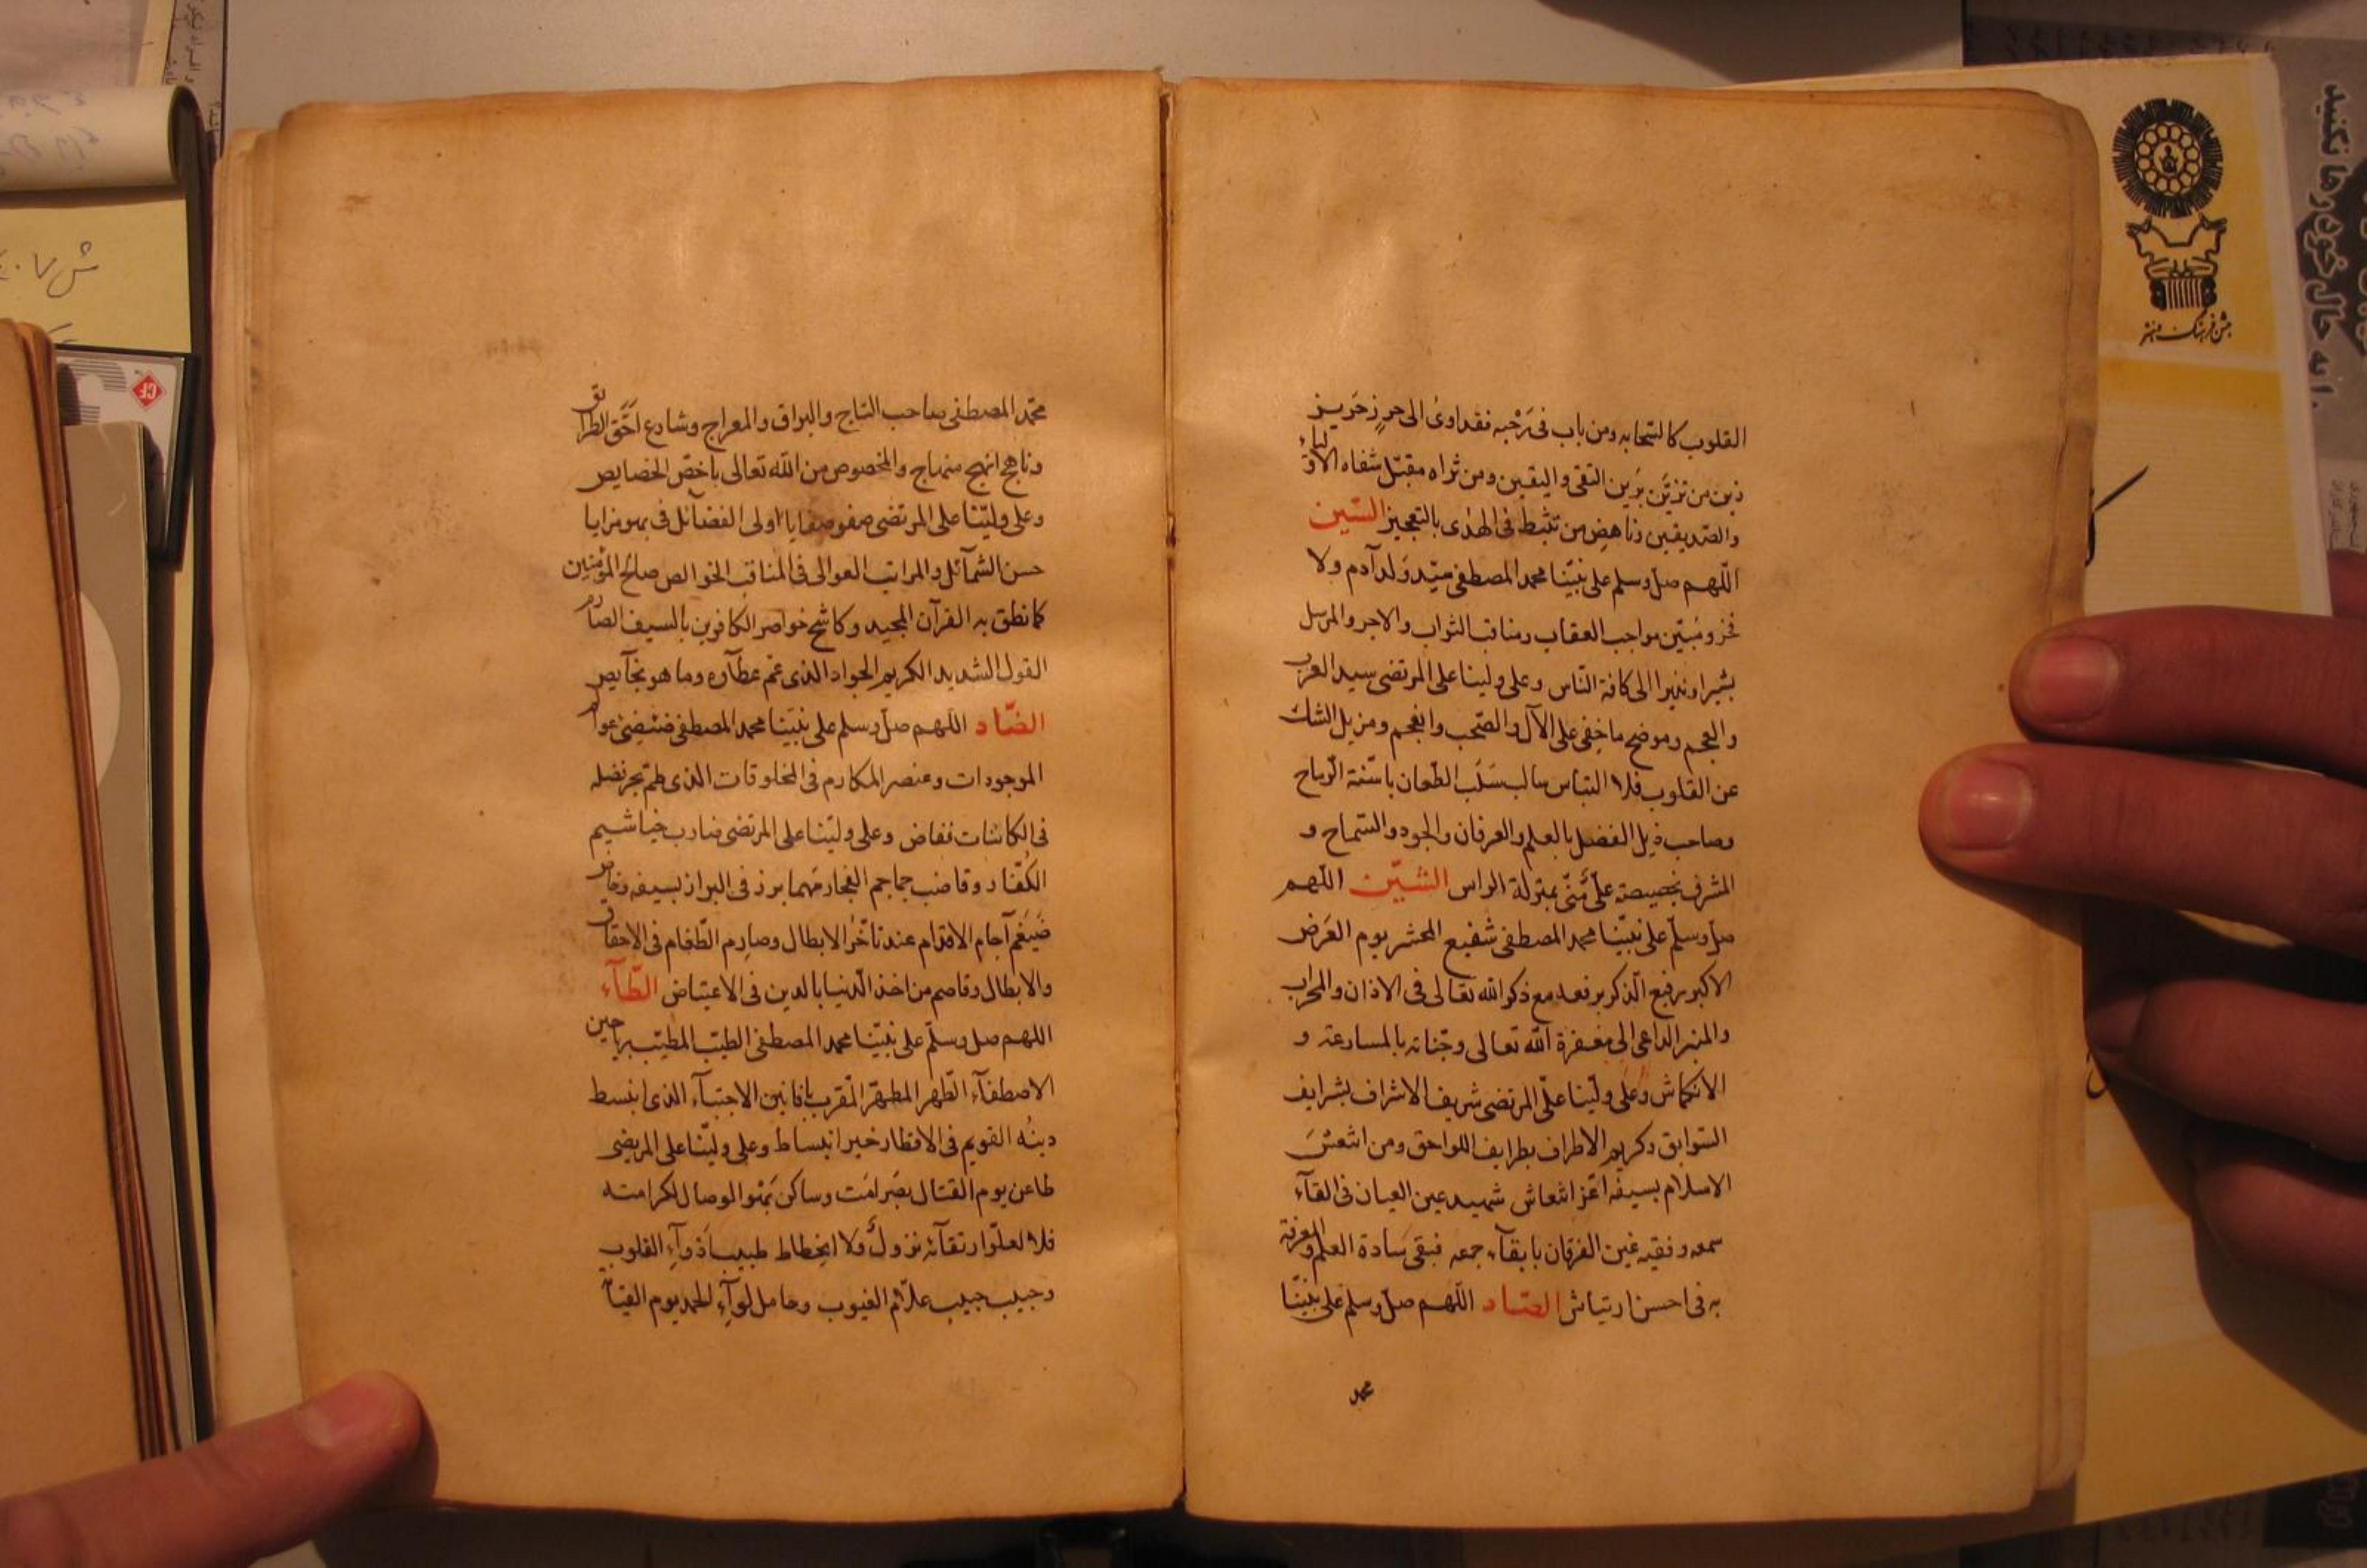 القلوب كالسحابه ومن باب فى رَحْبِه فقد اوىٰ الى حرزٍ حَريز
زين من تزيَّن بزَين التقى واليقين ومن ثراه مقبّل شفاه الاولياء
والصّديقين وناهض من تثبط فى الهُدٰى بالتعجيز السّين
اللّهم صلّ وسلم على نبيّنا محمد المصطفى سيّد وُلد آدم ولا
فخر ومُبيّن مواجب العقاب ومناقب الثواب والاجر والمرسل
بشيرا ونذيرا الى كافة النّاس وعلى ولينا على المرتضى سيد العرب
والعجم وموضح ما خفى على الآل والصّحب وانعجم ومزيل الشك
عن القلوب فلا التباس سالب سَلَب الطّعان باسنّة الرّماح
وصاحب ذيل الفضل بالعلم والعرفان والجود والسّماح و
المشرف بخصيصة علىّ مِنّى بمنزلة الراس الشّين اللّهم
صلّ وسلّم على نبيّنا محمد المصطفى شفيع المحشر يوم العَرض
الاكبر رفيع الذّكر برفعه مع ذكر الله تعالى فى الاذان والمحراب
والمنبر الداعى الى مغفرة الله تعالى وجنّاته بالمسارعة و
الانكماش وعلى وليّنا علىّ المرتضى شريف الاشراف بشرايف
السّوابق وكريم الاطراف بطرايف اللواحق ومن انتعش
الاسلام بسيفه اعّز انتعاش شهيد عين العيان فى القآء
سمعه وفقيه عين الفرقان بابقآء جمعه فبقى سادة العلم والمعرفة
به فى احسن ارتياش الصّاد اللّهم صلّ وسلم على نبيّنا
محمد
محمّد المصطفى صاحب التاج والبراق والمعراج وشارع احَقّ الطرايق
وناهج انهج منهاج والمخصوص من الله تعالى باخصّ الخصايص
وعلى وليّنا على المرتضى صفو صفايا اولى الفضآئل فى بهو مزايا
حسن الشمآئل والمراتب العوالى فى المناقب الخوالص صالح المؤمنين
كما نطق به القرآن المجيد وكاشح خواصر الكافرين بالسيف الصارم
القول الشديد الكريم الجواد الذى عّم عطآؤه وما هو بخآيص
الضّاد اللّهم صلّ وسلم على نبيّنا محمد المصطفى عوالم
الموجودات وعنصر المكارم فى المخلوقات الذى طمّ بحر فضله
فى الكائنات ففاض وعلى وليّنا على المرتضى ضارب خياشيم
الكفّار وقاضب جماجم الفجار مهما برز فى البراز بسيفه وخاض
ضَيغم آجام الاقدام عند تأخّر الابطال وصارم الطّغام فى الاحقاق
والابطال وقاصم من اخذ الدّنيا بالدين فى الاعتياض الطّآء
اللهم صل وسلّم على نبيّنا محمد المصطفى الطيّب المطيّب برياحين
الاصطفآء الطّهر المطهّر المقرب بافانين الاجتبآء الذى انبسط
دينُه القويم فى الاقطار خير انبساط وعلى وليّنا على المرتضى
طاعن يوم القتال بصرامته وساكن بَهْو الوصال لكرامته
فلا لعلّو ارتقآئه نزولٌ ولا انحطاط طبيب ادوآء القلوب
وحبيب حبيب علاّم الغيوب وحامل لوآءِ الحمد يوم القيامة
ش ٤٠٧
جشن فرهنگ و هنر